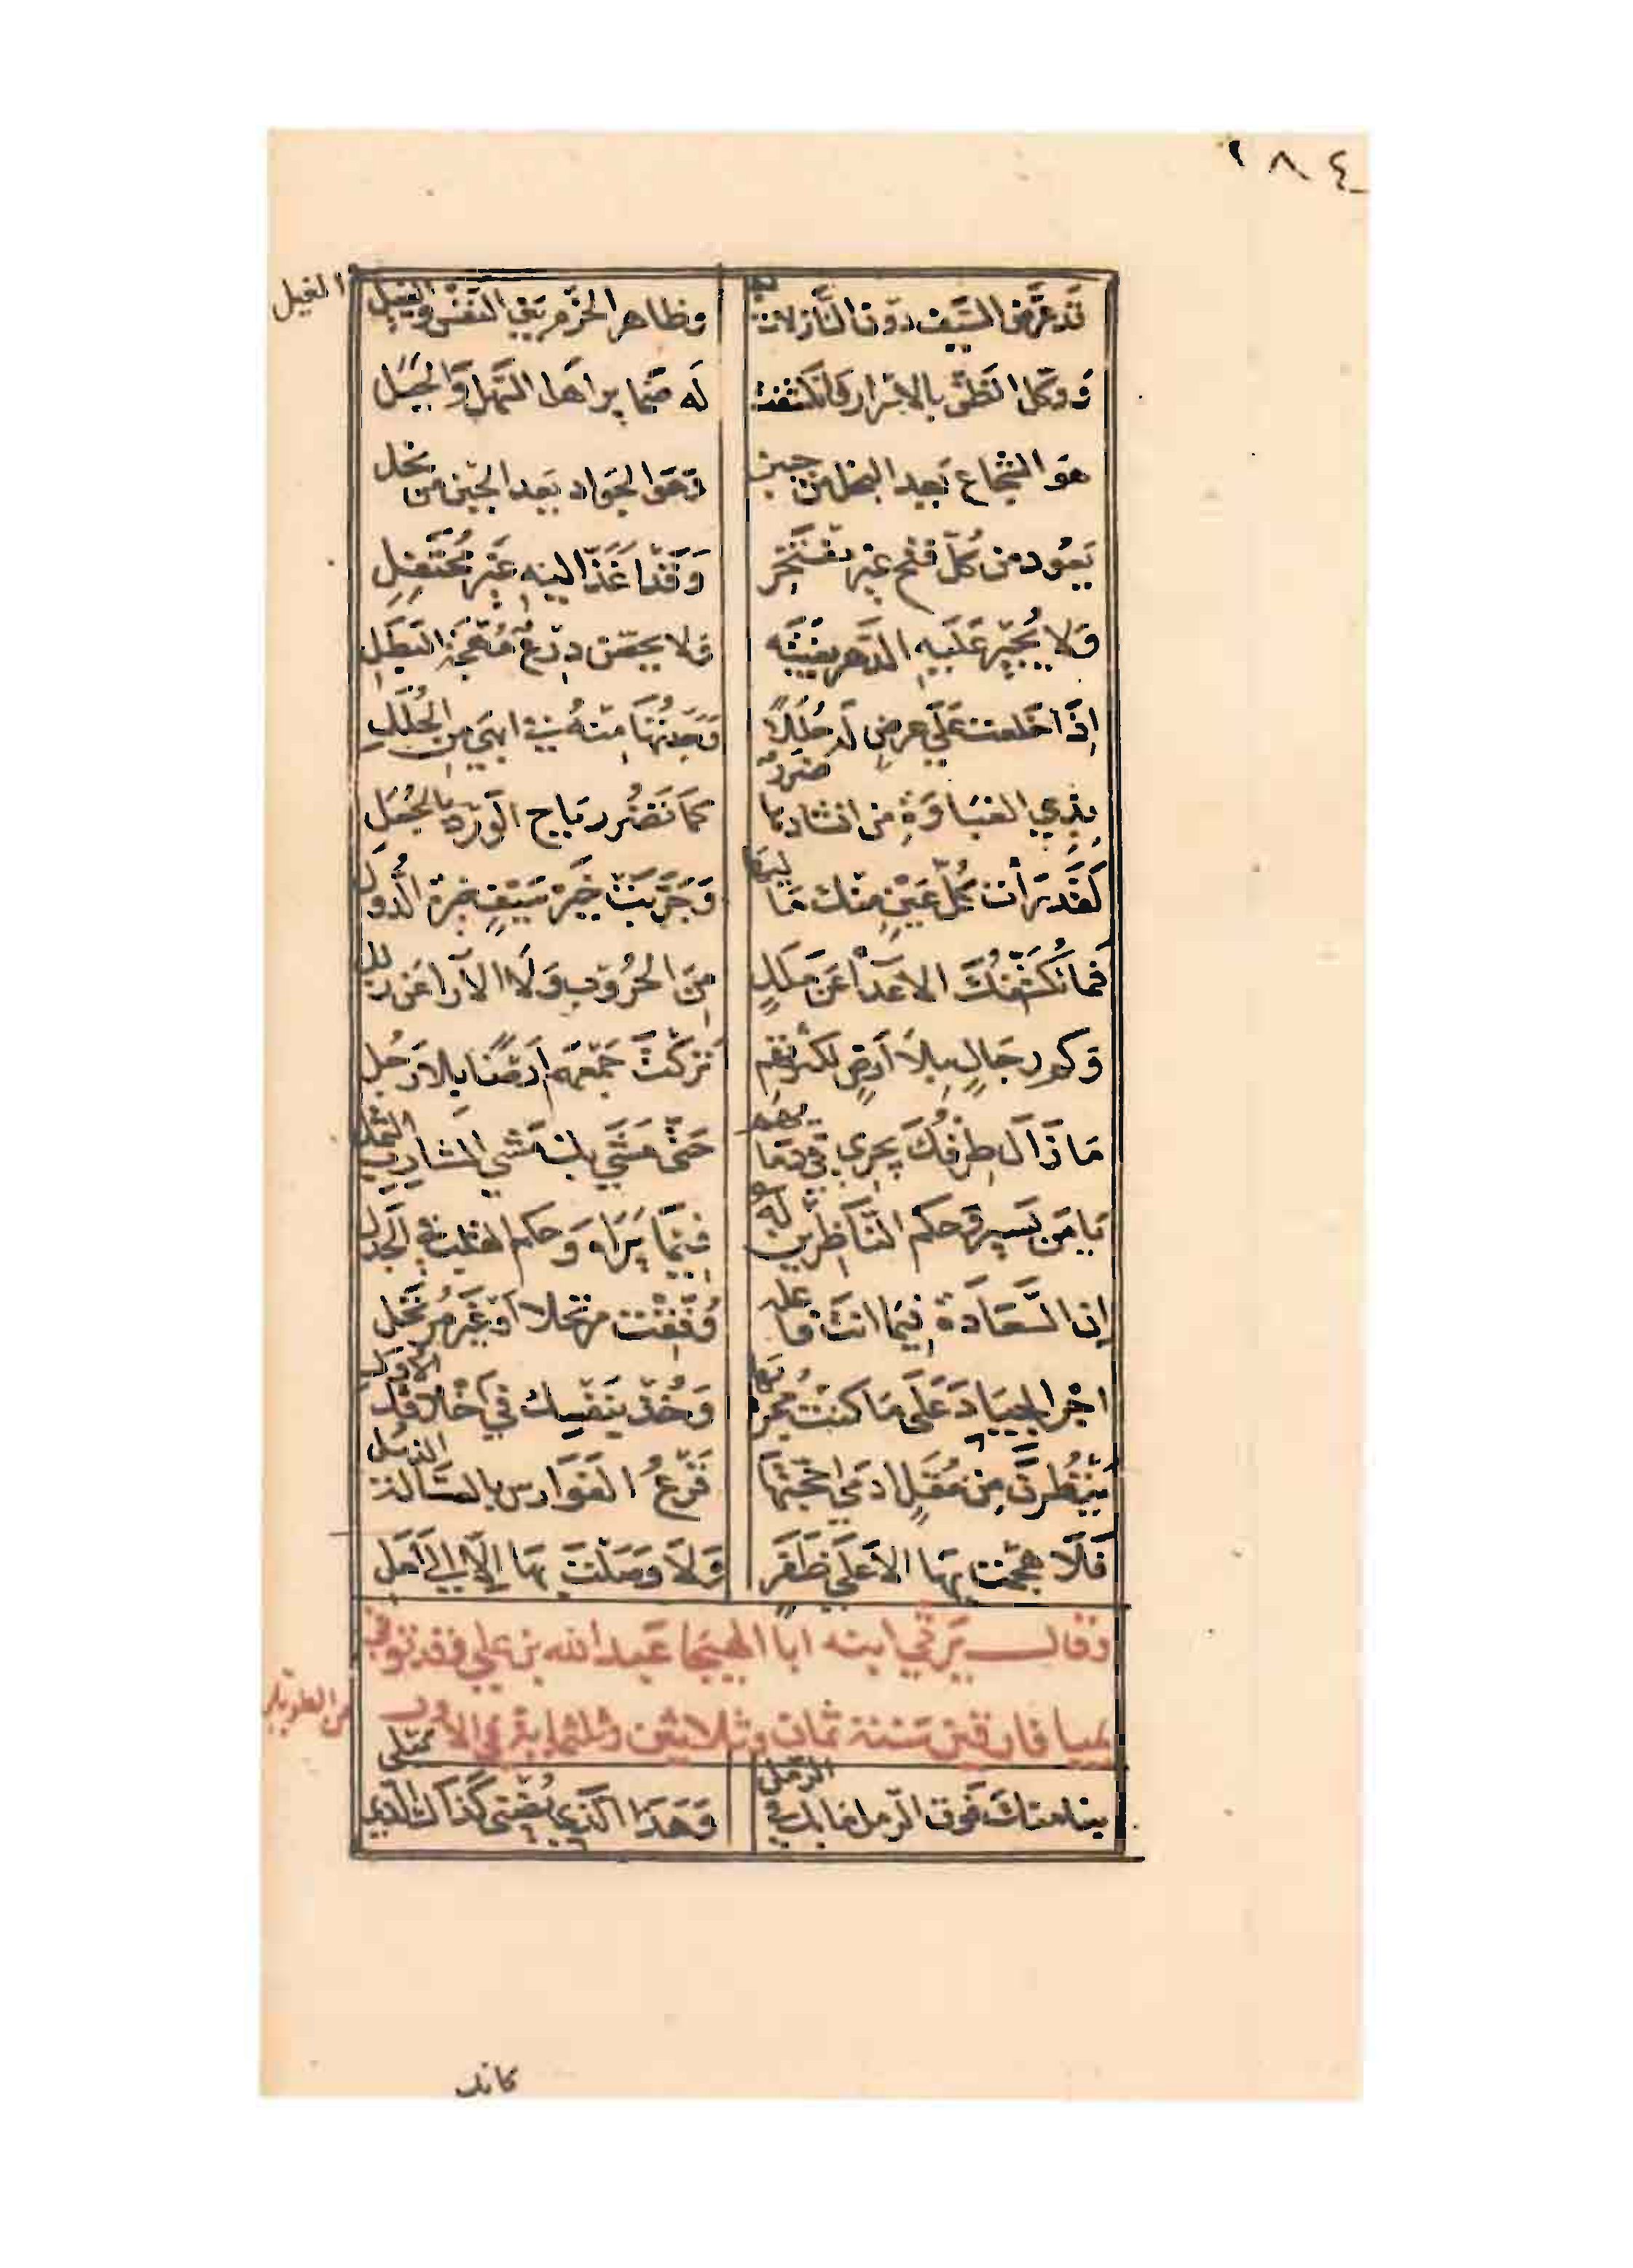 ٢٨٤
قد عرّض السّيف دون النّازلات به وظاهر الحزم بين النفس والغيل
الغيل
ووكل الظنّ بالاسرار فانكشفت له ضمائر أهل السّهل والجبل
هو الشجاع يعد البخل من جبن وهو الجواد يعد الجبن من بخل
يعود من كلّ فتح غير مفتخر وقد أغذّ إليه غير محتفل
ولا يجير عليه الدهر بغيته ولا يحصّن درع مهجة البطل
إذا خلعت على عرض له حللا وجدتها منه في ابهى من الحلل
بذي الغباوة من انشادها ضرر كما تضر رياح الورد بالجعل
لقد رأت كلّ عين منك ماليها وجرّبت خير سيف خيرة الدّول
فما تكشّفك الاعداء عن ملل من الحروب ولا الآراء عن زلل
وكم رجال بلا أرض لكثرتهم تركت جمعهم أرضا بلا رجل
ما زال طرفك يجري في دمائهم حتّى مشى بك مشي الشارب الثمل
يا من يسير وحكم النّاظرين له فيما يراه وحكم القلب في الجذل
إن السّعادة فيما انت فاعله وفّقت مرتحلا أو غير مرتحل
اجر الجياد على ما كنت مجريها وخذ بنفسك في أخلاقك الأول
ينظرن من مقل ادمى احجّتها قرع الفوارس بالعسّالة الذبل
فلا هجمت بها الا على ظفر ولا وصلت بها إلا إلى أمل
وقال يرثي ابنه ابا الهيجا عبد الله بن علي وقد توفي
بميا فارقين سنة ثمان وثلاثين وثلثمائة في الأول
من الطويل
بنا منك فوق الرّمل ما بك في الرّمل وهذا الذي يضني كذاك الذي يبلي
كانك